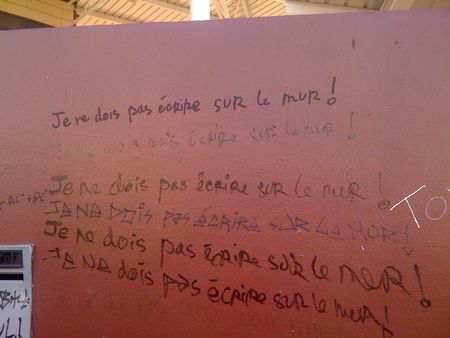 Je ne dois pas écrire sur le mur !
Je ne dois pas écrire sur le mur !
Je ne dois pas écrire sur le mur !
TO
JE NE DOIS pas ECRIRE SUR LE MUR !
Je ne dois pas écrire sur le mur !
JE NE dois pas écrire sur le mur !